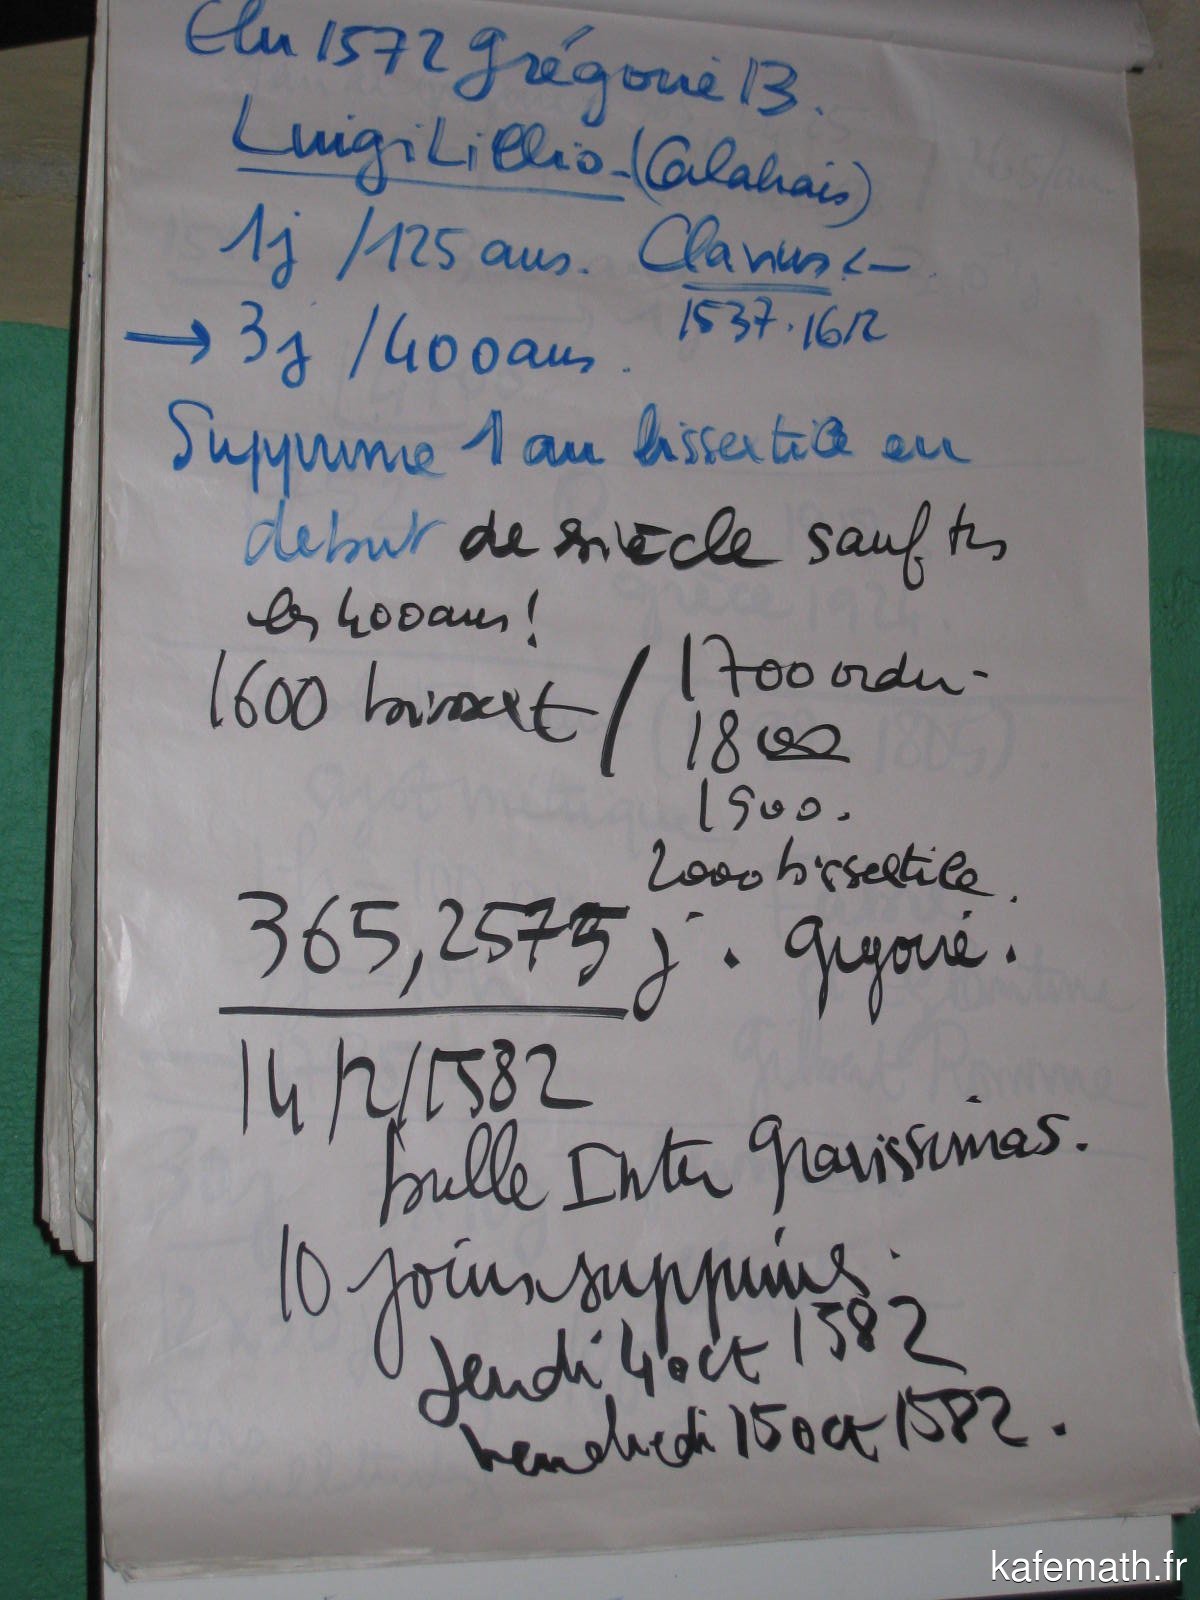 Elu 1572 Grégoire 13.
Luigi Lillio - (Calabrais)
1j / 125 ans. Clavius <-
1537 . 1612
→ 3j / 400 ans.
Supprime 1 an bissextile en
debut de siècle sauf ts
les 400 ans !
1600 bissext / 1700 ordin-
1800
1900.
2000 bissextile.
365,2575 j . Grégoire.
14/2/1582
bulle Inter Gravissimas.
10 jours supprimés.
Jeudi 4 oct 1582
vendredi 15 oct 1582.
kafemath.fr